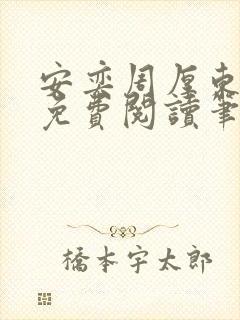 安奕周厘東
免費閱讀筆
橋本宇太郎